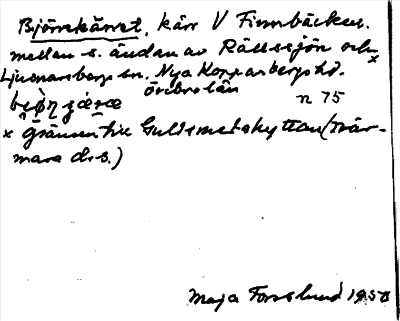 Björnkärret, kärr V Finnbäcken.
mellan s. ändan av Rällssjön och x
Ljusnarsbergs sn. Nya Kopparbergs hd.
Örebro län
n 75
x gränsen till Guldsmedshyttan (när-
mare d.s.)
Maja Forsslund 1950